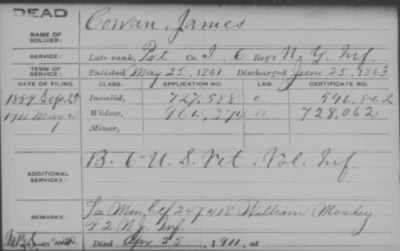 DEAD
Cowan, James
NAME OF SOLDIER:
SERVICE: Late rank, Pvt Co. I, 6 Reg't N. Y. Inf.
TERM OF SERVICE: Enlisted May 25, 1861 Discharged June 25, 1863
DATE OF FILING. CLASS. APPLICATION NO. LAW. CERTIFICATE NO.
1889 Sep. Invalid, 727,588
1911 May Widow, 728,062
Minor,
ADDITIONAL SERVICES: B. 6 U. S. Vet. Vol. Inf.
REMARKS: Min. Ctf 247418 William
F 2 N. J. Inf.
Died Apr. 25 1911, at